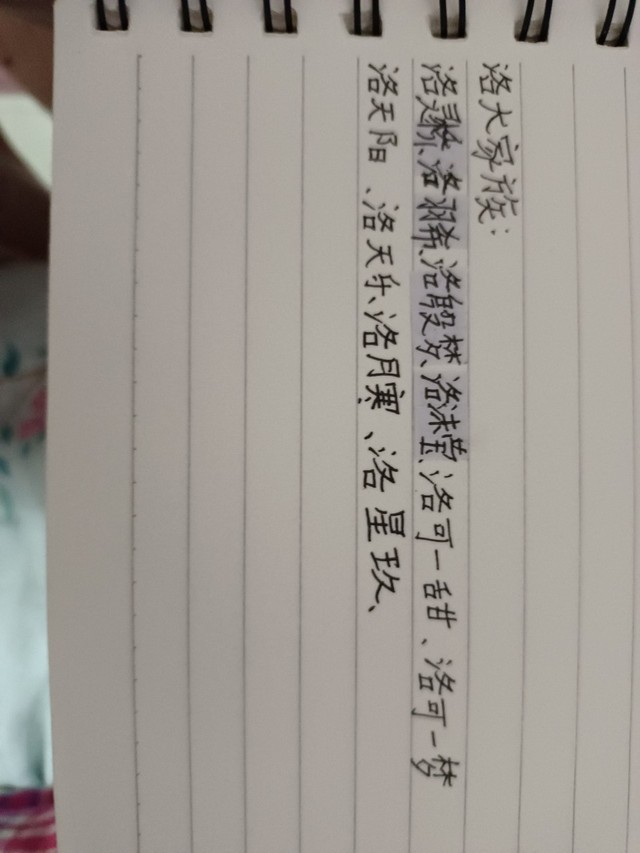 洛大家族：
洛、洛羽希、洛殷梦、洛沫莹、洛可一甜、洛可一梦
洛天阳、洛天乐、洛月寒、洛星玖、